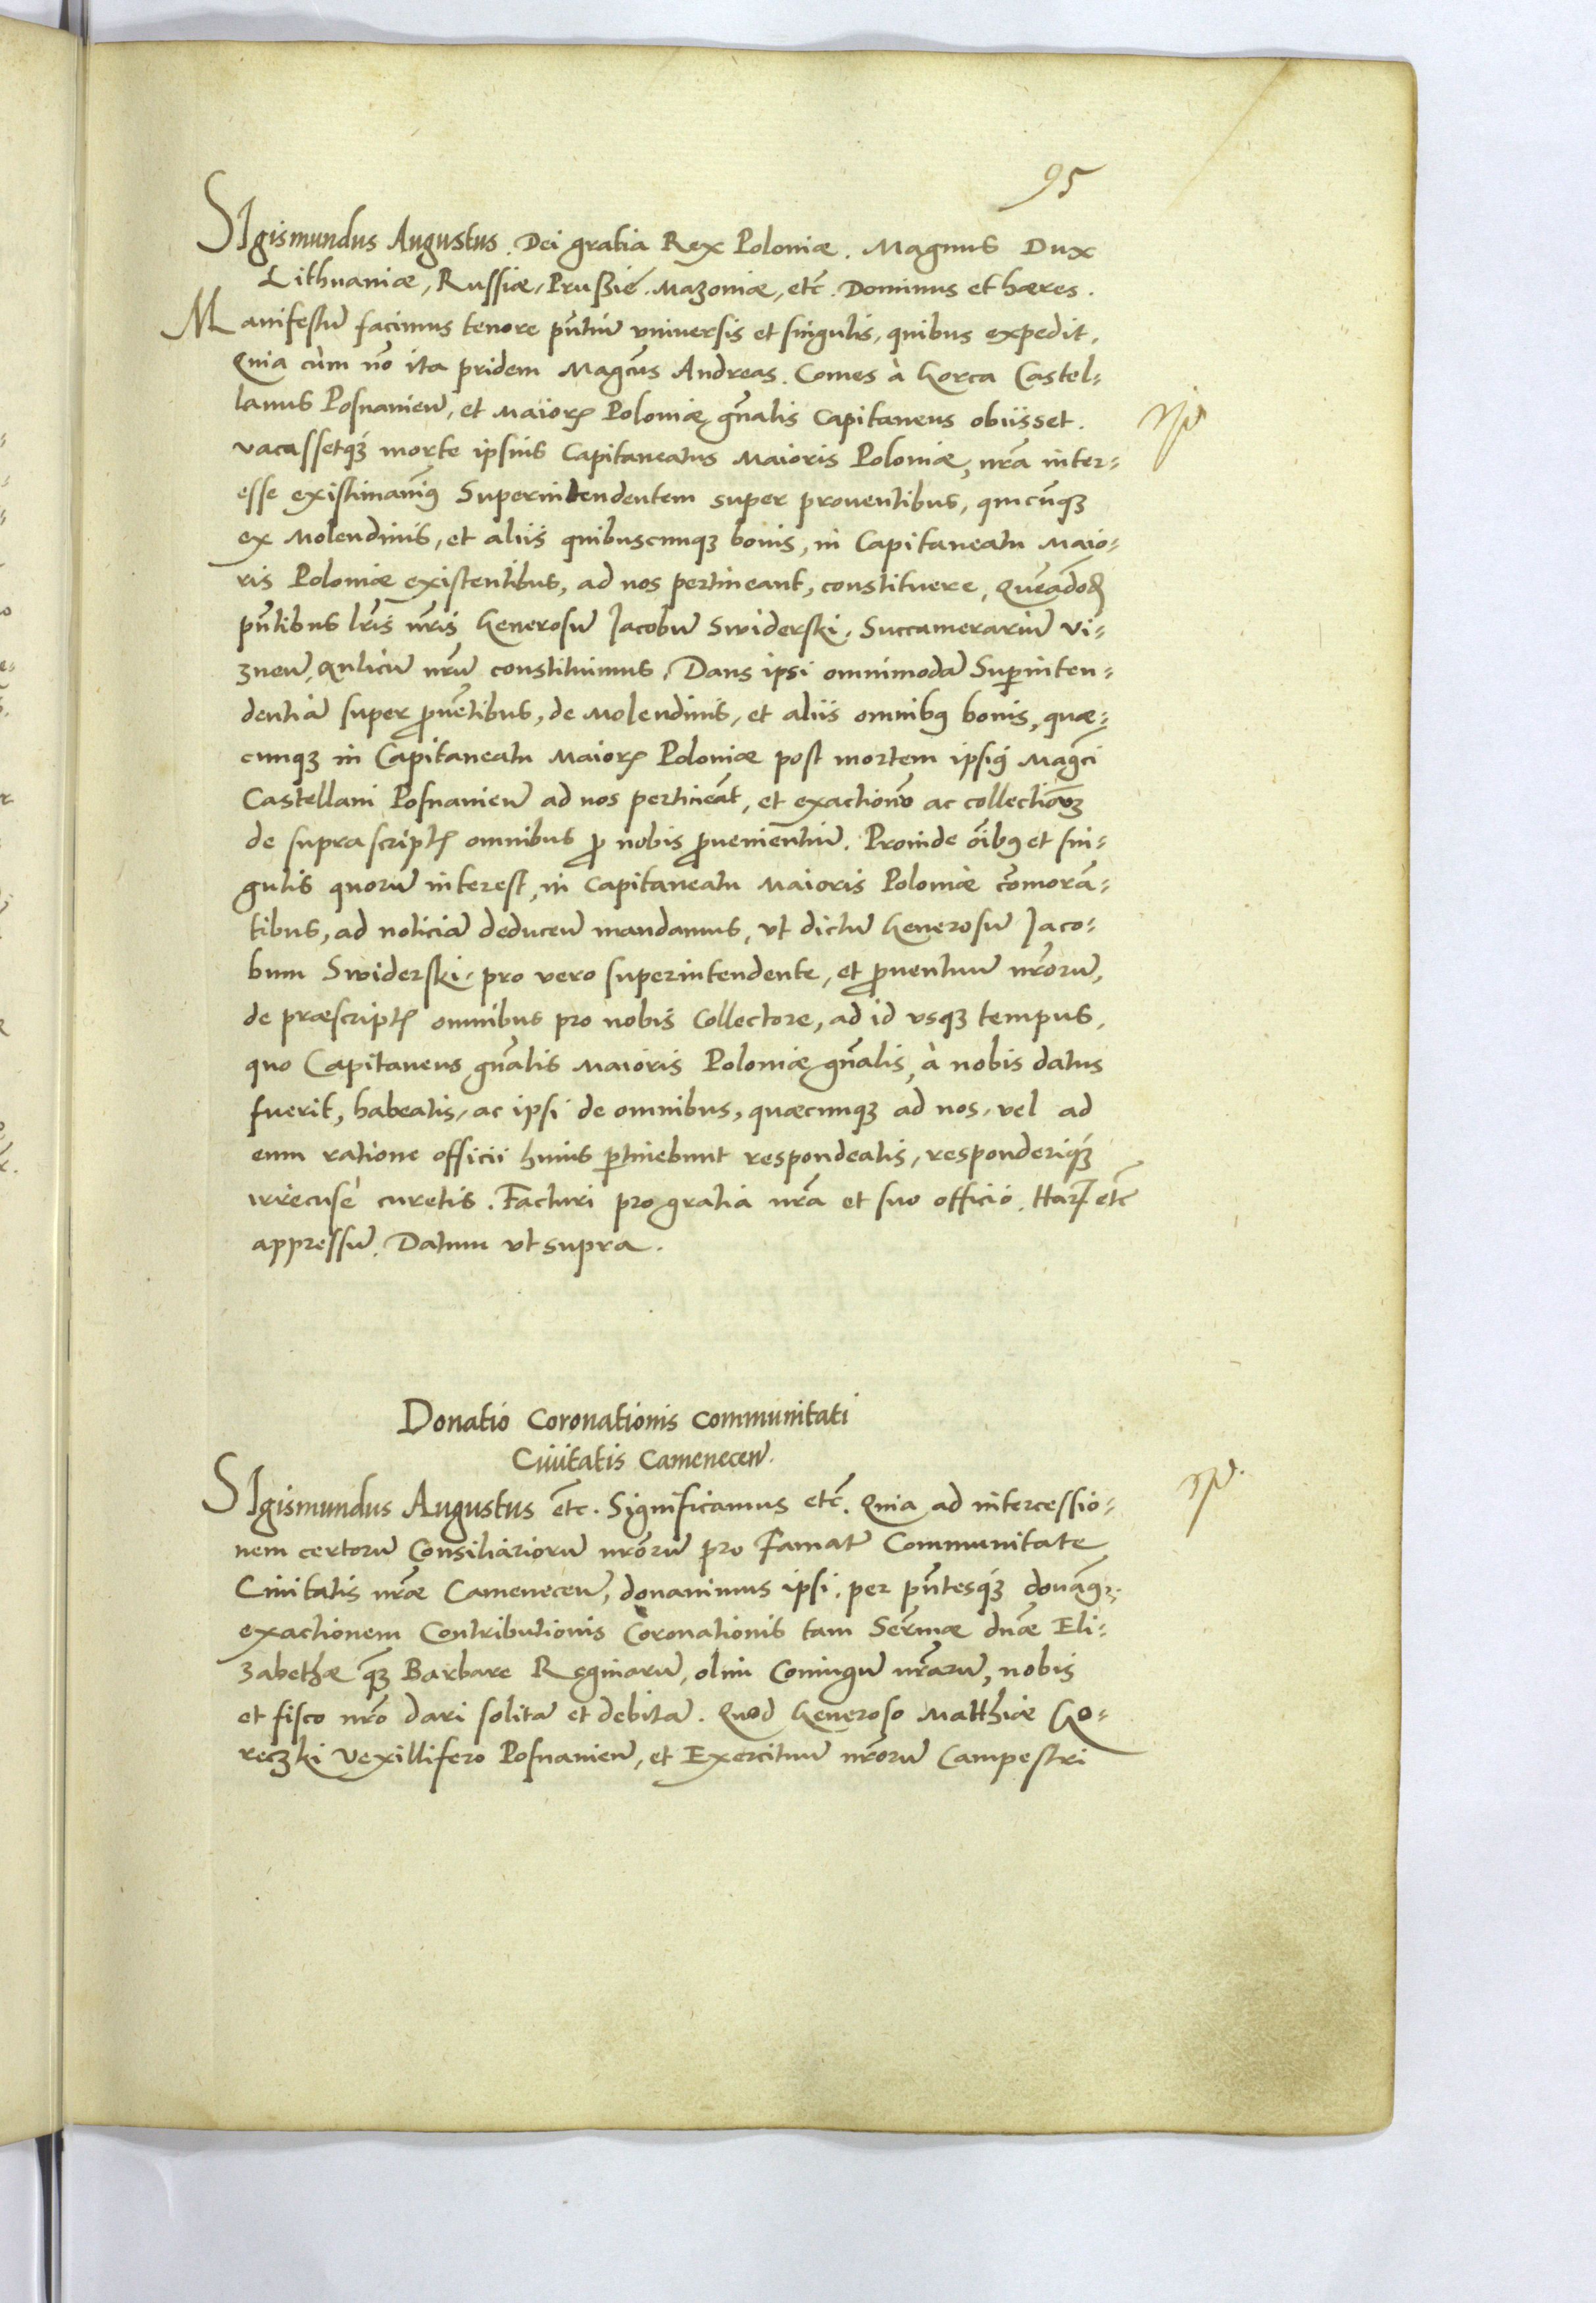 95
SIgismundus Augustus. Dei gratia Rex Poloniæ. Magnus Dux
Lithuaniæ, Russiæ, Prussię. Mazoniæ, etc̃. Dominus et hæres.
Manifestũ facimus tenore pñtiũ vniuersis et singulis, quibus expedit,
Quia cùm nõ ita pridem Magcũs Andreas. Comes à Gorca Castel-
lanus Posnanien̄, et Maioris Poloniæ gñalis Capitaneus obiisset.
vacassetq́ꝫ morte ipsius Capitaneatus Maioris Poloniæ, nr̃a inter-
esse existimauimꝰ Superintendentem super prouentibus, quicũqꝫ
ex Molendinis, et aliis quibuscunqꝫ bonis, in Capitaneatu Maio-
ris Poloniæ existentibus, ad nos pertineant, constituere, Quẽadmodũ
pñtibus lr̃is nr̃is Generosũ Jacobũ Swiderski, Succamerariũ Vi-
znen̄, Aulicũ nr̃um constituimus, Dans ipsi omnimodã Suꝑinten-
dentiã super ꝓuẽtibus, de Molendinis, et aliis omnibꝰ bonis, quæ-
cunqꝫ in Capitaneatu Maioris Poloniæ post mortem ipsiꝰ Magci
Castellani Posnanien̄ ad nos pertineãt, et exactionũ ac collectionũ
de suprascriptis omnibus ꝓ nobis ꝓuenientiũ. Proinde õibꝰ et sin-
gulis quorũ interest, in Capitaneatu Maioris Poloniæ cõmorã-
tibus, ad noticiã deducen̄ mandamus, vt dictũ Generosũ Jaco-
bum Swiderski, pro vero superintendente, et ꝓuentuũ nr̃orũ,
de præscriptis omnibus pro nobis Collectore, ad id vsqꝫ tempus,
quo Capitaneus gñalis Maioris Poloniæ gñalis, à nobis datus
fuerit, habeatis, ac ipsi de omnibus, quæcunqꝫ ad nos, vel ad
eum ratione officii huius ꝑtinebunt respondeatis, responderiq́ꝫ
irrecusè curetis. Facturi pro gratia nr̃a et suo officio. Har̃ etc̃
appressũ. Datum vt supra.
Donatio Coronationis Communitati
Ciuitatis Camenecen̄.
SIgismundus Augustus etc̃. Significamus etc̃. Quia ad intercessio-
nem certorũ Consiliariorũ nr̃orũ pro Famat Communitate
Ciuitatis nr̃æ Camenecen̄, donauimus ipsi, per pñtesq́ꝫ donamꝰ,
exactionem Contributionis Coronationis tam Serm̃æ dñæ Eli-
zabethæ q̃ꝫ Barbare Reginarũ, olim Coniugũ nr̃arũ, nobis
et fisco nr̃o dari solitã et debitã. Quod Generoso Matthiæ Go-
reczki Vexillifero Posnanien̄, et Exercituũ nr̃orũ Campestri